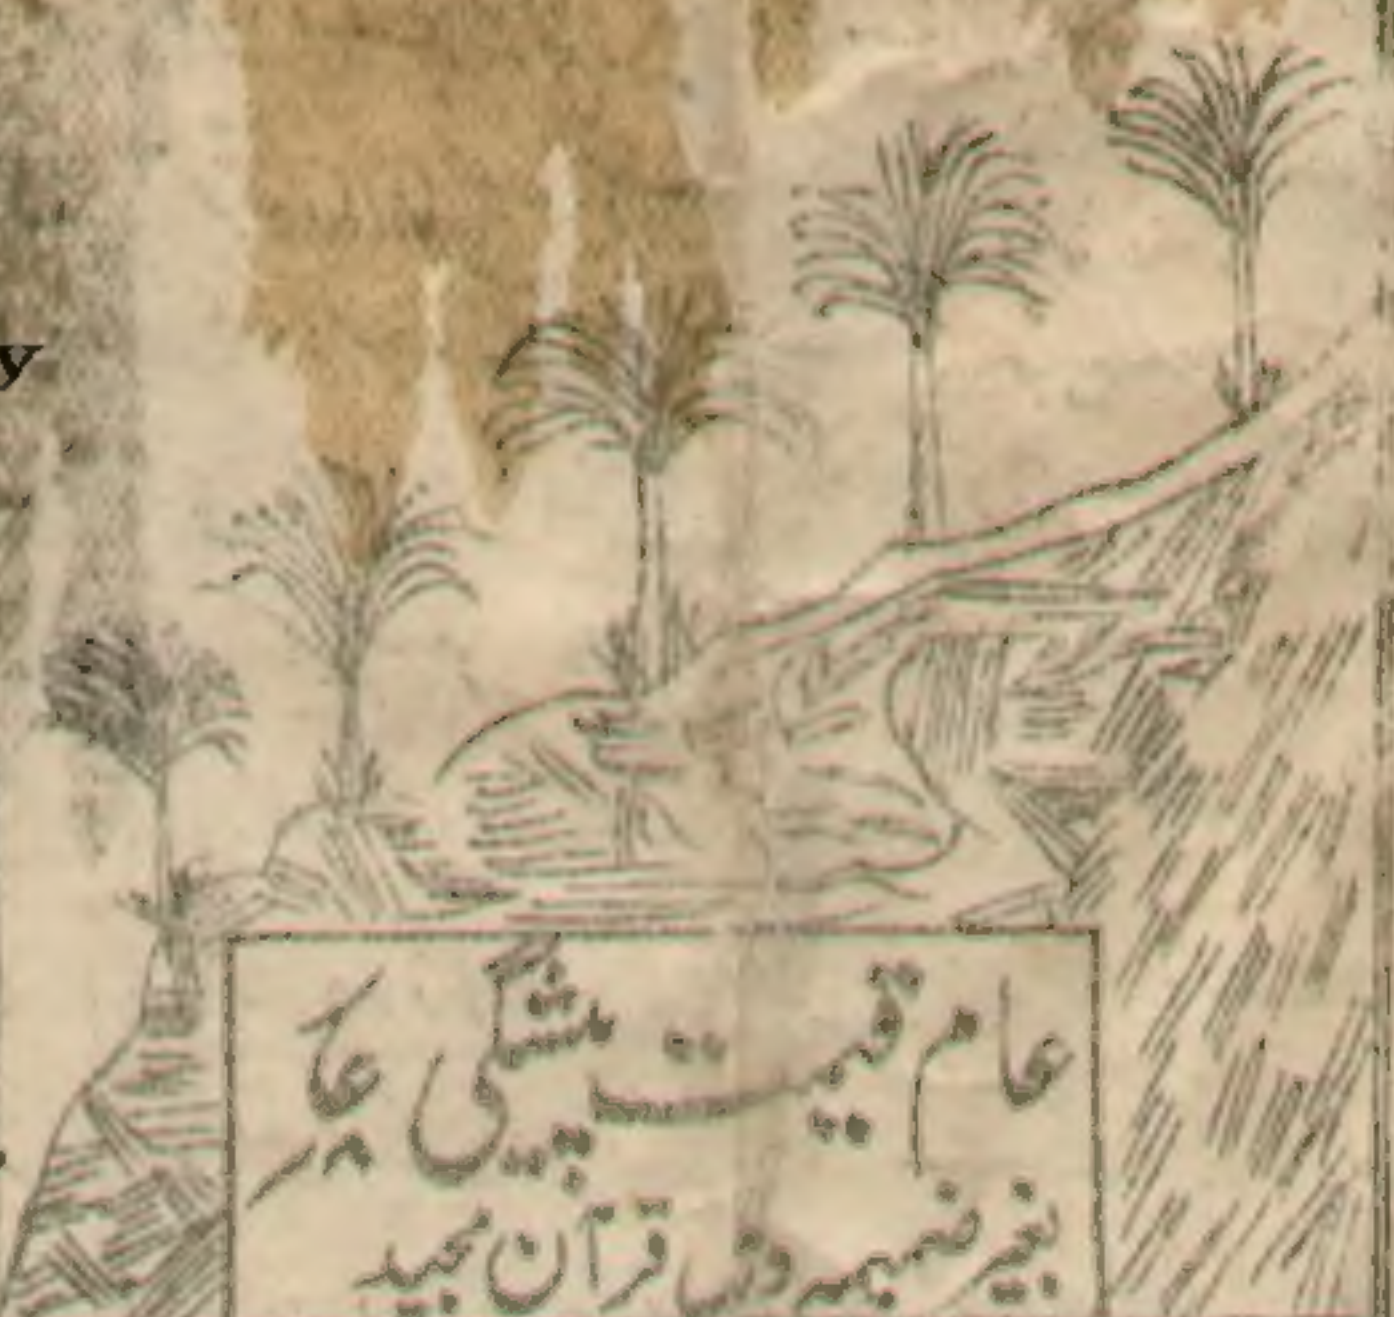 y
عام قیمت پیشگی
بغیر ضمیمہ قرآن مجید